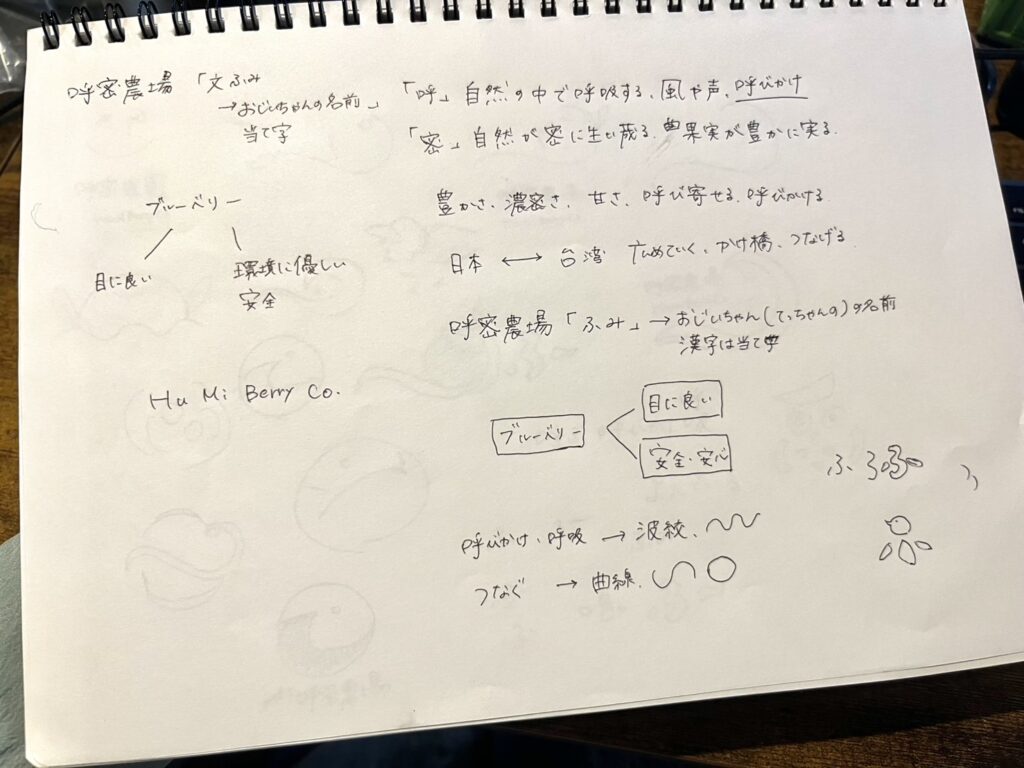 呼密農場 「文ふみ
→おじいちゃんの名前」
当て字
「呼」自然の中で呼吸する、風や声、呼びかけ
「密」自然が密に生い茂る、果実が豊かに実る。
ブルーベリー
目に良い
環境に優しい
安全
豊かさ、濃密さ、甘さ、呼び寄せる、呼びかける
日本 ←→ 台湾 広めていく、かけ橋、つなげる
呼密農場「ふみ」→おじいちゃん(てっちゃんの)の名前
漢字は当て字
Hu Mi Berry Co.
ブルーベリー
目に良い
安全・安心
呼びかけ、呼吸 → 波紋、
つなぐ → 曲線、
ふ ふ